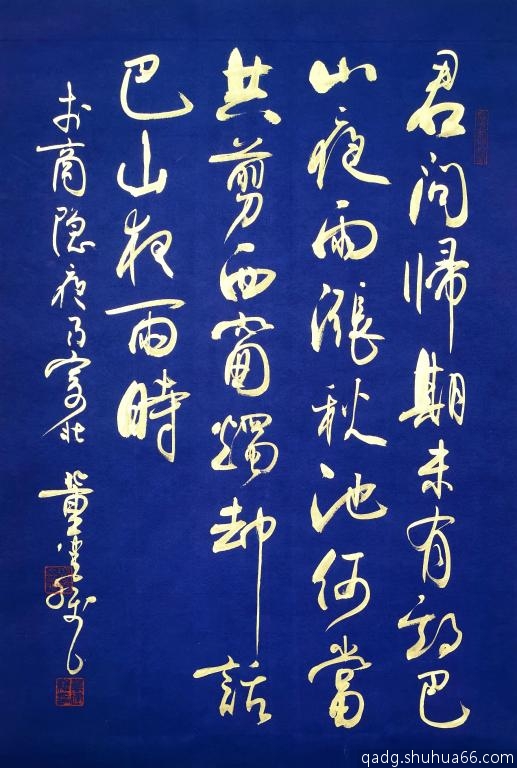 君問歸期未有期巴
山夜雨漲秋池何當
共剪西窗燭却話
巴山夜雨時
李商隐夜雨寄北 董
qadg.shuhua66.com